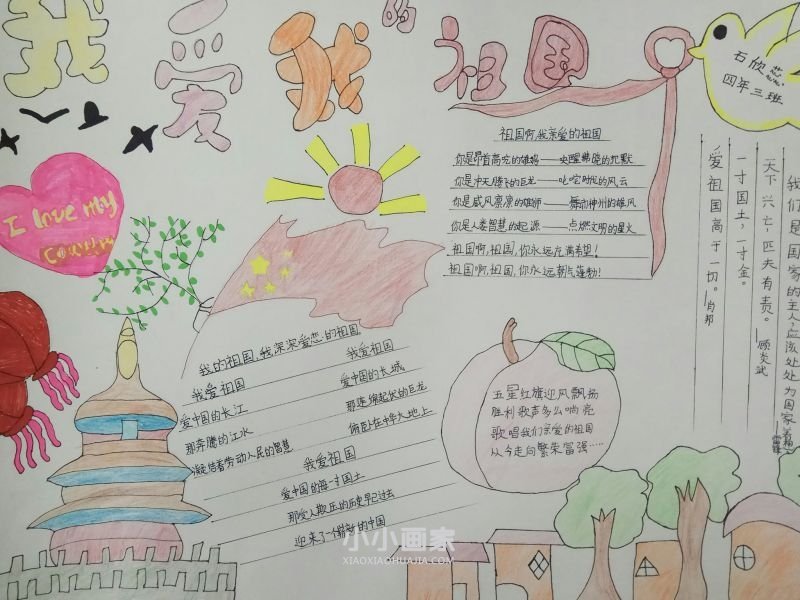 我爱我的祖国
石欣蕊
四年三班
I love my
Country
祖国啊,我亲爱的祖国
你是昂首高吭的雄鸡——唤醒拂晓的沉默
你是冲天腾飞的巨龙——叱咤时代的风云
你是威风凛凛的雄狮——舞动神州的雄风
你是人类智慧的起源——点燃文明的星火
祖国啊,祖国,你永远充满希望!
祖国啊,祖国,你永远朝气蓬勃!
我们是国家的主人,应该处处为国家着想。——雷锋
天下兴亡,匹夫有责。——顾炎武
一寸国土,一寸金。
爱祖国高于一切。——肖邦
我的祖国,我深深爱恋的祖国
我爱祖国
爱中国的长江
那奔腾的江水
凝结着劳动人民的智慧
我爱祖国
爱中国的长城
那连绵起伏的巨龙
俯卧在中华大地上
我爱祖国
爱中国的每一寸国土
那受人欺丘的历史早已过去
迎来了一个崭新的中国
五星红旗迎风飘扬
胜利歌声多么响亮
歌唱我们亲爱的祖国
从今走向繁荣富强……
小小画家
XIAOXIAOHUAJIA.COM